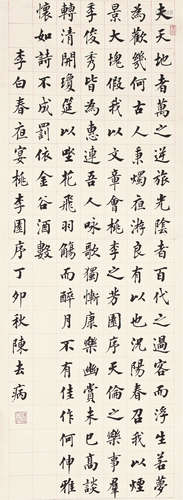 夫天地萬物之逆旅光陰者百代之過客而浮生若夢
為歡幾何古人秉燭夜遊良有以也況陽春召我以煙
景大塊假我以文章會桃李之芳園序天倫之樂事羣
季俊秀皆為惠連吾人詠歌獨慚康樂幽賞未已高談
轉清開瓊筵以坐花飛羽觴而醉月不有佳作何伸雅
懷如詩不成罰依金谷酒數
李白春夜宴桃李園序丁卯秋陳去病